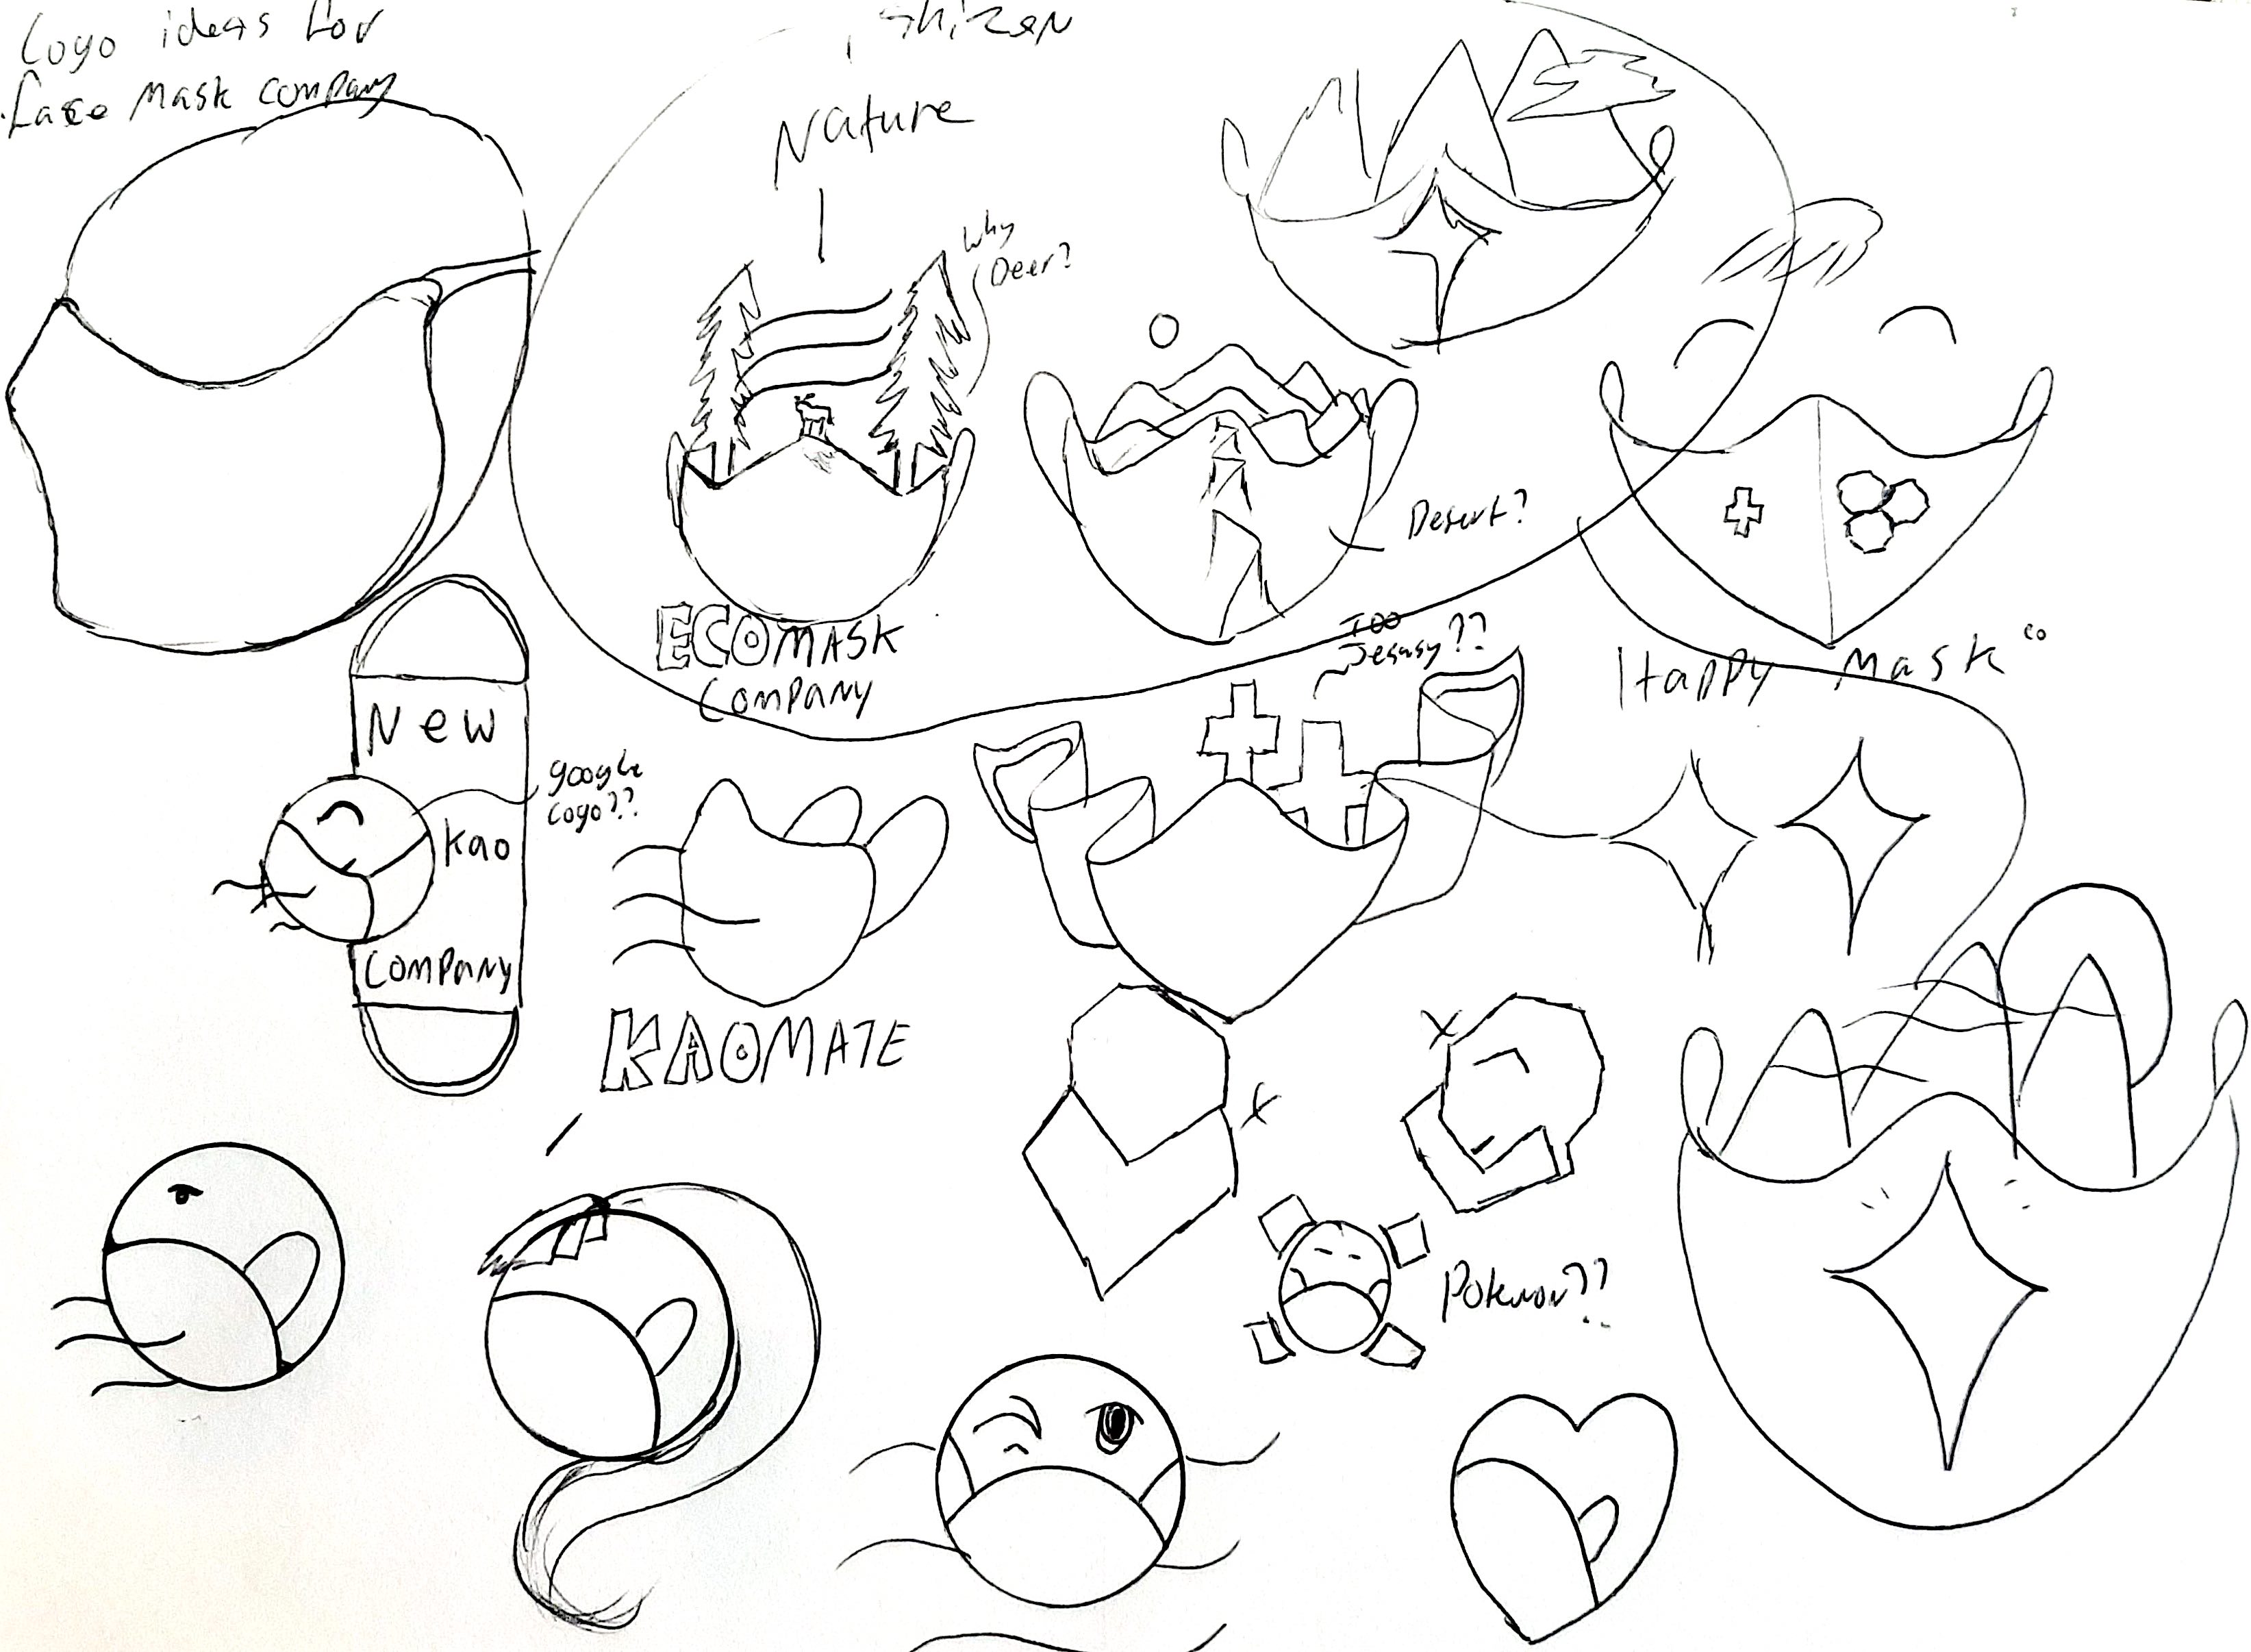 Logo ideas for
face mask company
shizen
Nature
Why
Deer?
Desert?
ECOMASK
COMPANY
Too
Jesusy??
Happy Mask co
New
Kao
COMPANY
google
logo??
KAOMATE
Pokemon??